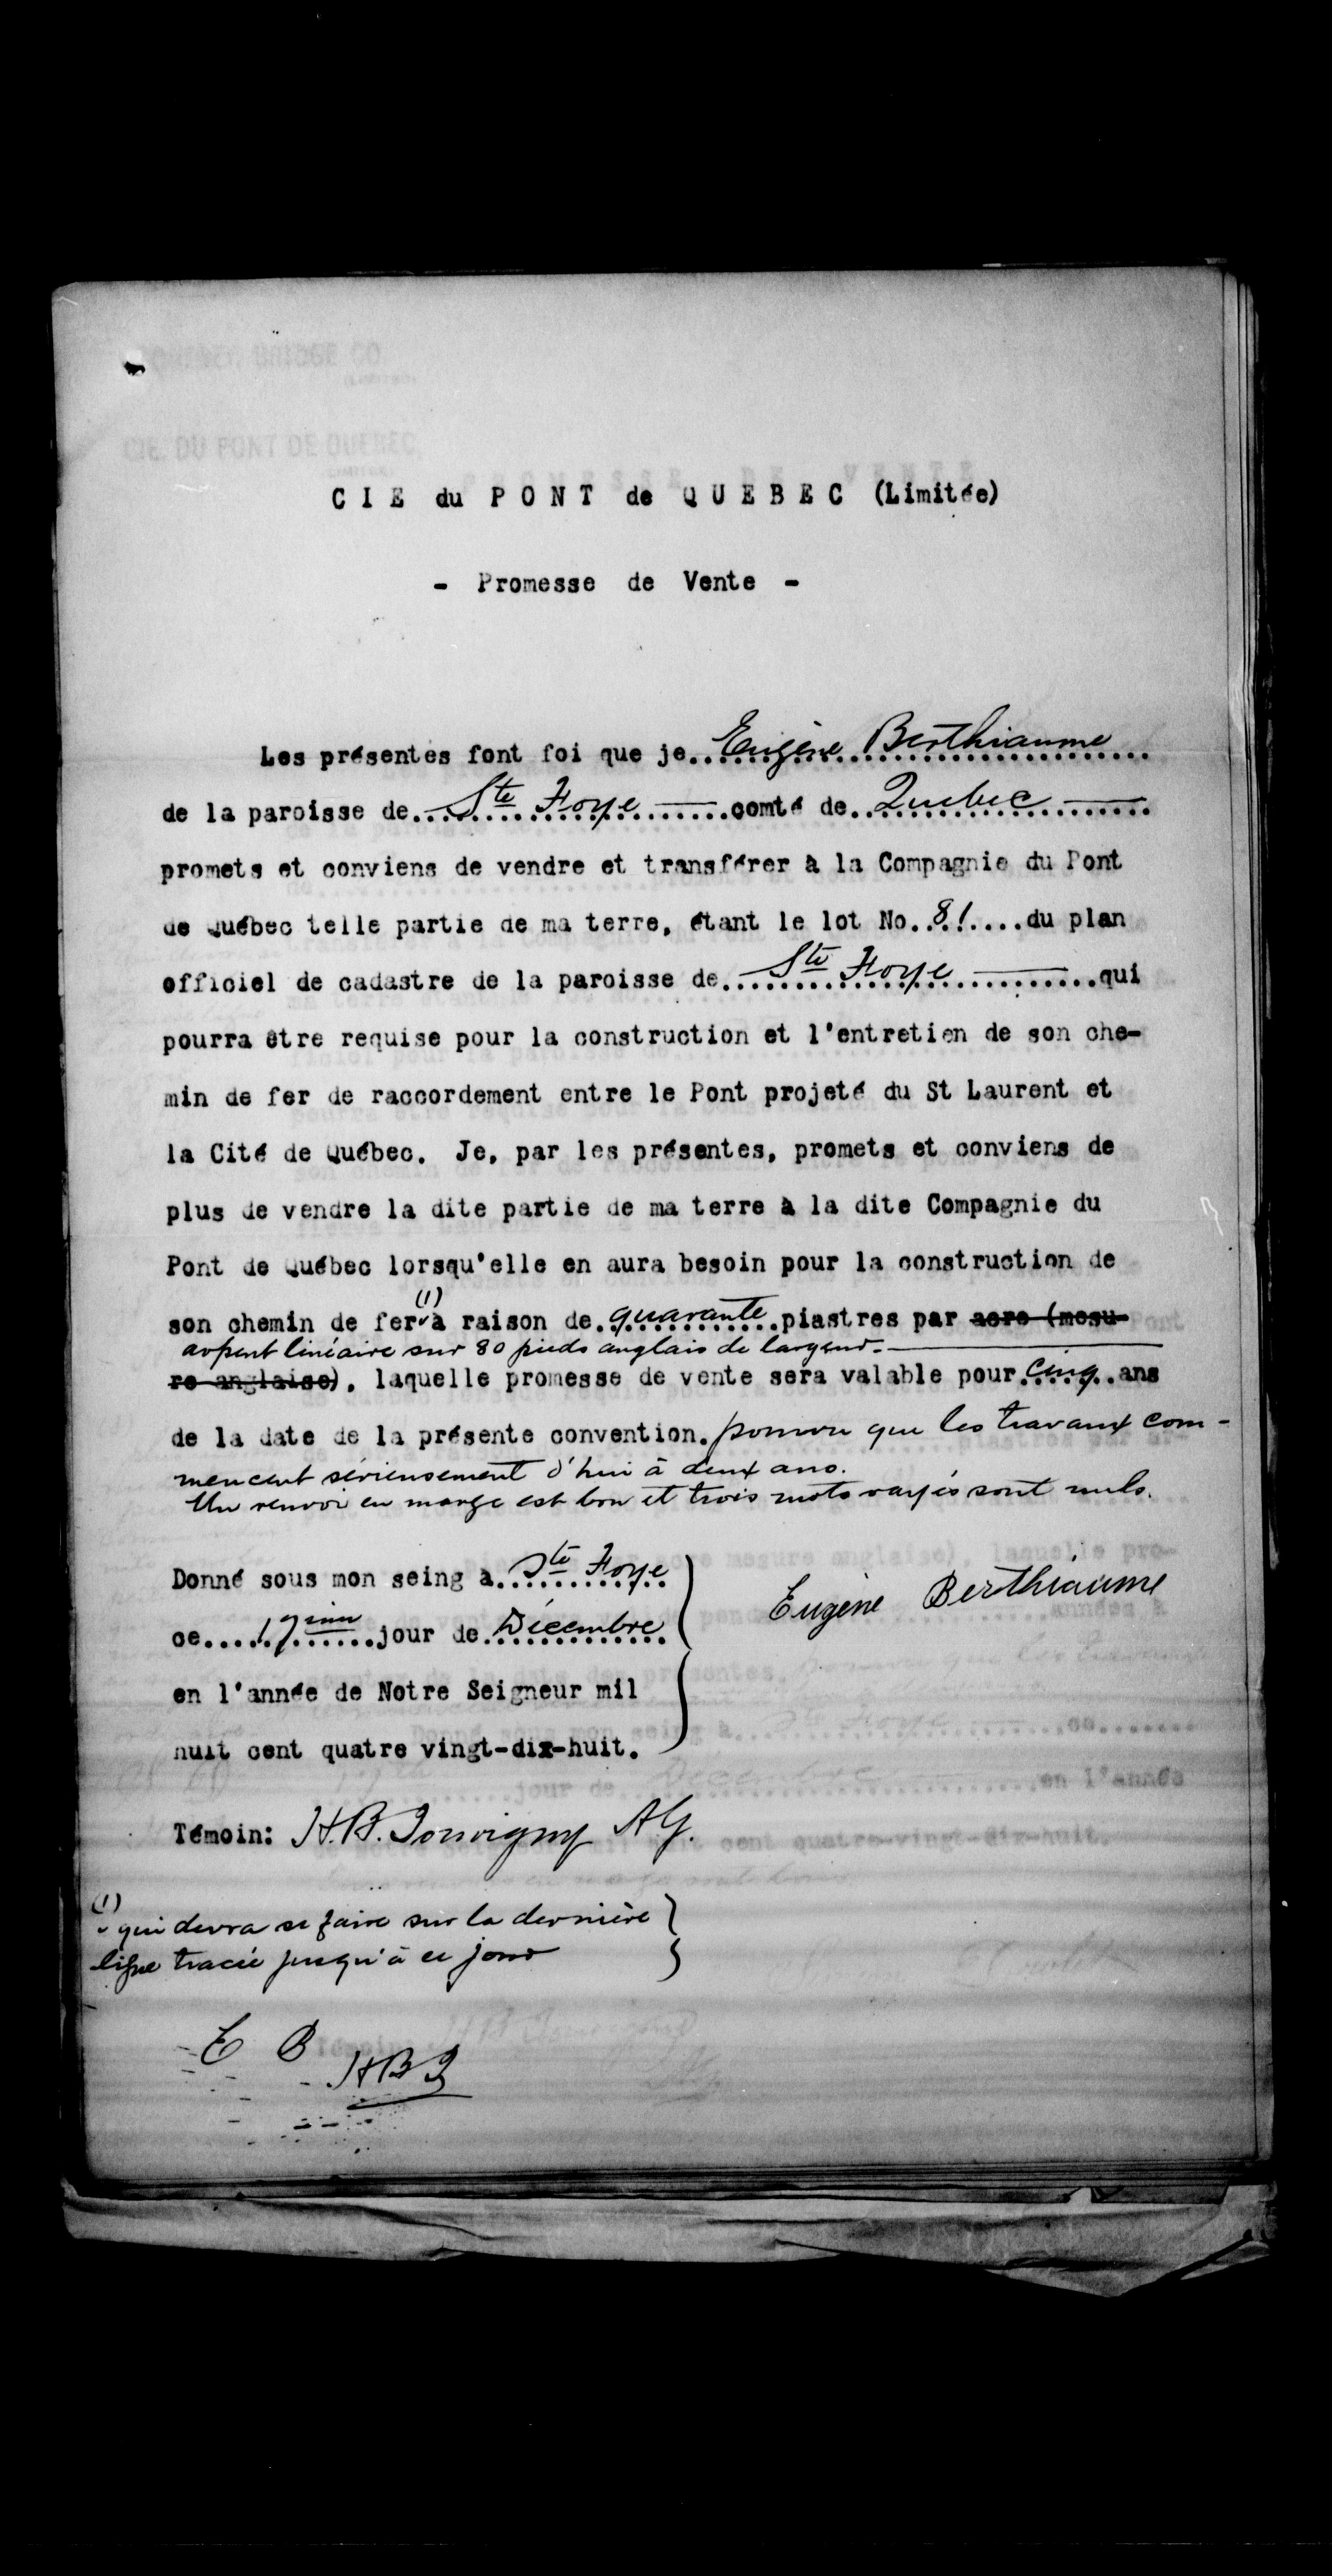 CIE du PONT de QUEBEC (Limitée)
- Promesse de Vente -
Les présentes font foi que je..Eugène Berthiaume...
de la paroisse de...Ste Foye......comté de..Quebec......
promets et conviens de vendre et transférer à la Compagnie du Pont
de Québec telle partie de ma terre, étant le lot No..81....du plan
officiel de cadastre de la paroisse de...Ste Foye......qui
pourra être requise pour la construction et l'entretien de son che-
min de fer de raccordement entre le Pont projeté du St Laurent et
la Cité de Québec. Je, par les présentes, promets et conviens de
plus de vendre la dite partie de ma terre à la dite Compagnie du
Pont de Québec lorsqu'elle en aura besoin pour la construction de
son chemin de fer (1) à raison de.quarante.piastres par acre (mesu-
arpent linéaire sur 80 pieds anglais de largeur.
re anglaise), laquelle promesse de vente sera valable pour.cinq..ans
de la date de la présente convention. pourvu que les travaux com-
mencent sérieusement d'hui à deux ans.
Un renvoi en marge est bon et trois mots rayés sont nuls.
Donné sous mon seing à..Ste Foye
Eugène Berthiaume
ce....17ième....jour de.Décembre
en l'année de Notre Seigneur mil
huit cent quatre vingt-dix-huit.
Témoin: H.B. AG.
(1) qui devra se faire sur la dernière
ligne tracée jusqu'à ce jour
E B
HB
CIE. DU PONT DE QUEBEC,